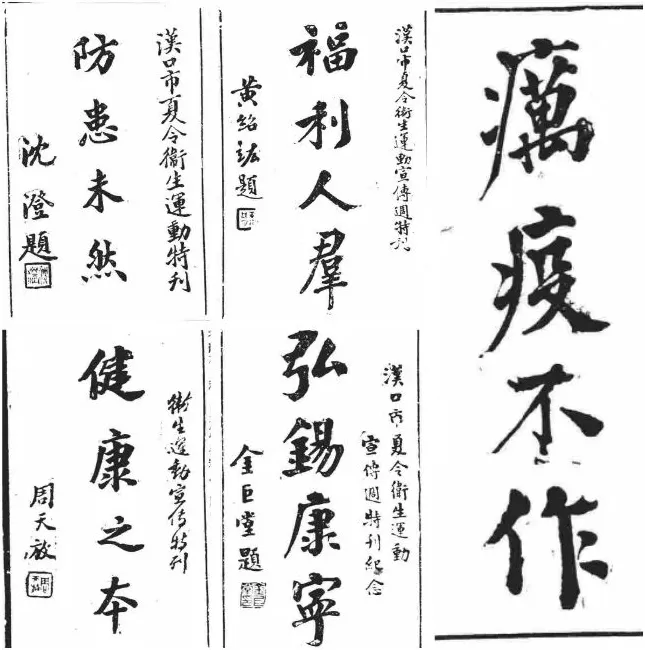 漢口市夏令衞生運動特刊
防患未然
沈澄題
漢口市夏令衞生運動宣傳週特刊
福利人羣
黄紹竑題
癘疫不作
衛生運動宣传特刊
健康之本
周天放
漢口市夏令衛生運動
宣傳週特刊紀念
弘錫康寧
金巨堂題